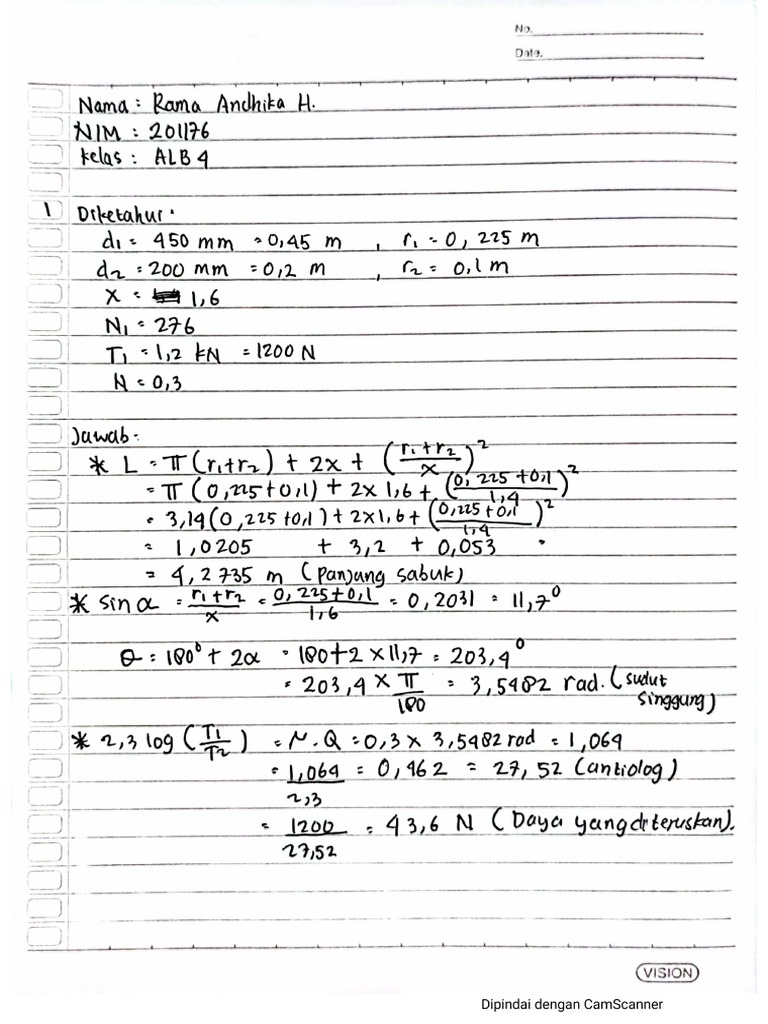 No.
Date.
Nama : Rama Andhika H.
NIM : 201176
Kelas : ALB 4
1 Diketahui :
d1 = 450 mm = 0,45 m , r1 = 0,225 m
d2 = 200 mm = 0,2 m , r2 = 0,1 m
X = 1,6
N1 = 276
T1 = 1,2 kN = 1200 N
N = 0,3
Jawab :
* L = π (r1+r2) + 2x + (r1+r2/x)²
= π (0,225+0,1) + 2x 1,6 + (0,225+0,1/1,4)²
= 3,14 (0,225+0,1) + 2x1,6 + (0,225+0,1/1,4)²
= 1,0205 + 3,2 + 0,053
= 4,2735 m (Panjang sabuk)
* sin α = r1+r2/x = 0,225+0,1/1,6 = 0,2031 = 11,7°
θ = 180° + 2α = 180+2 x 11,7 = 203,4°
= 203,4 x π/180 = 3,5482 rad. (sudut singgung)
* 2,3 log (T1/T2) = N . Q = 0,3 x 3,5482 rad = 1,064
= 1,064/2,3 = 0,462 = 27,52 (antiolog)
= 1200/27,52 = 43,6 N (Daya yang diteruskan).
VISION
Dipindai dengan CamScanner